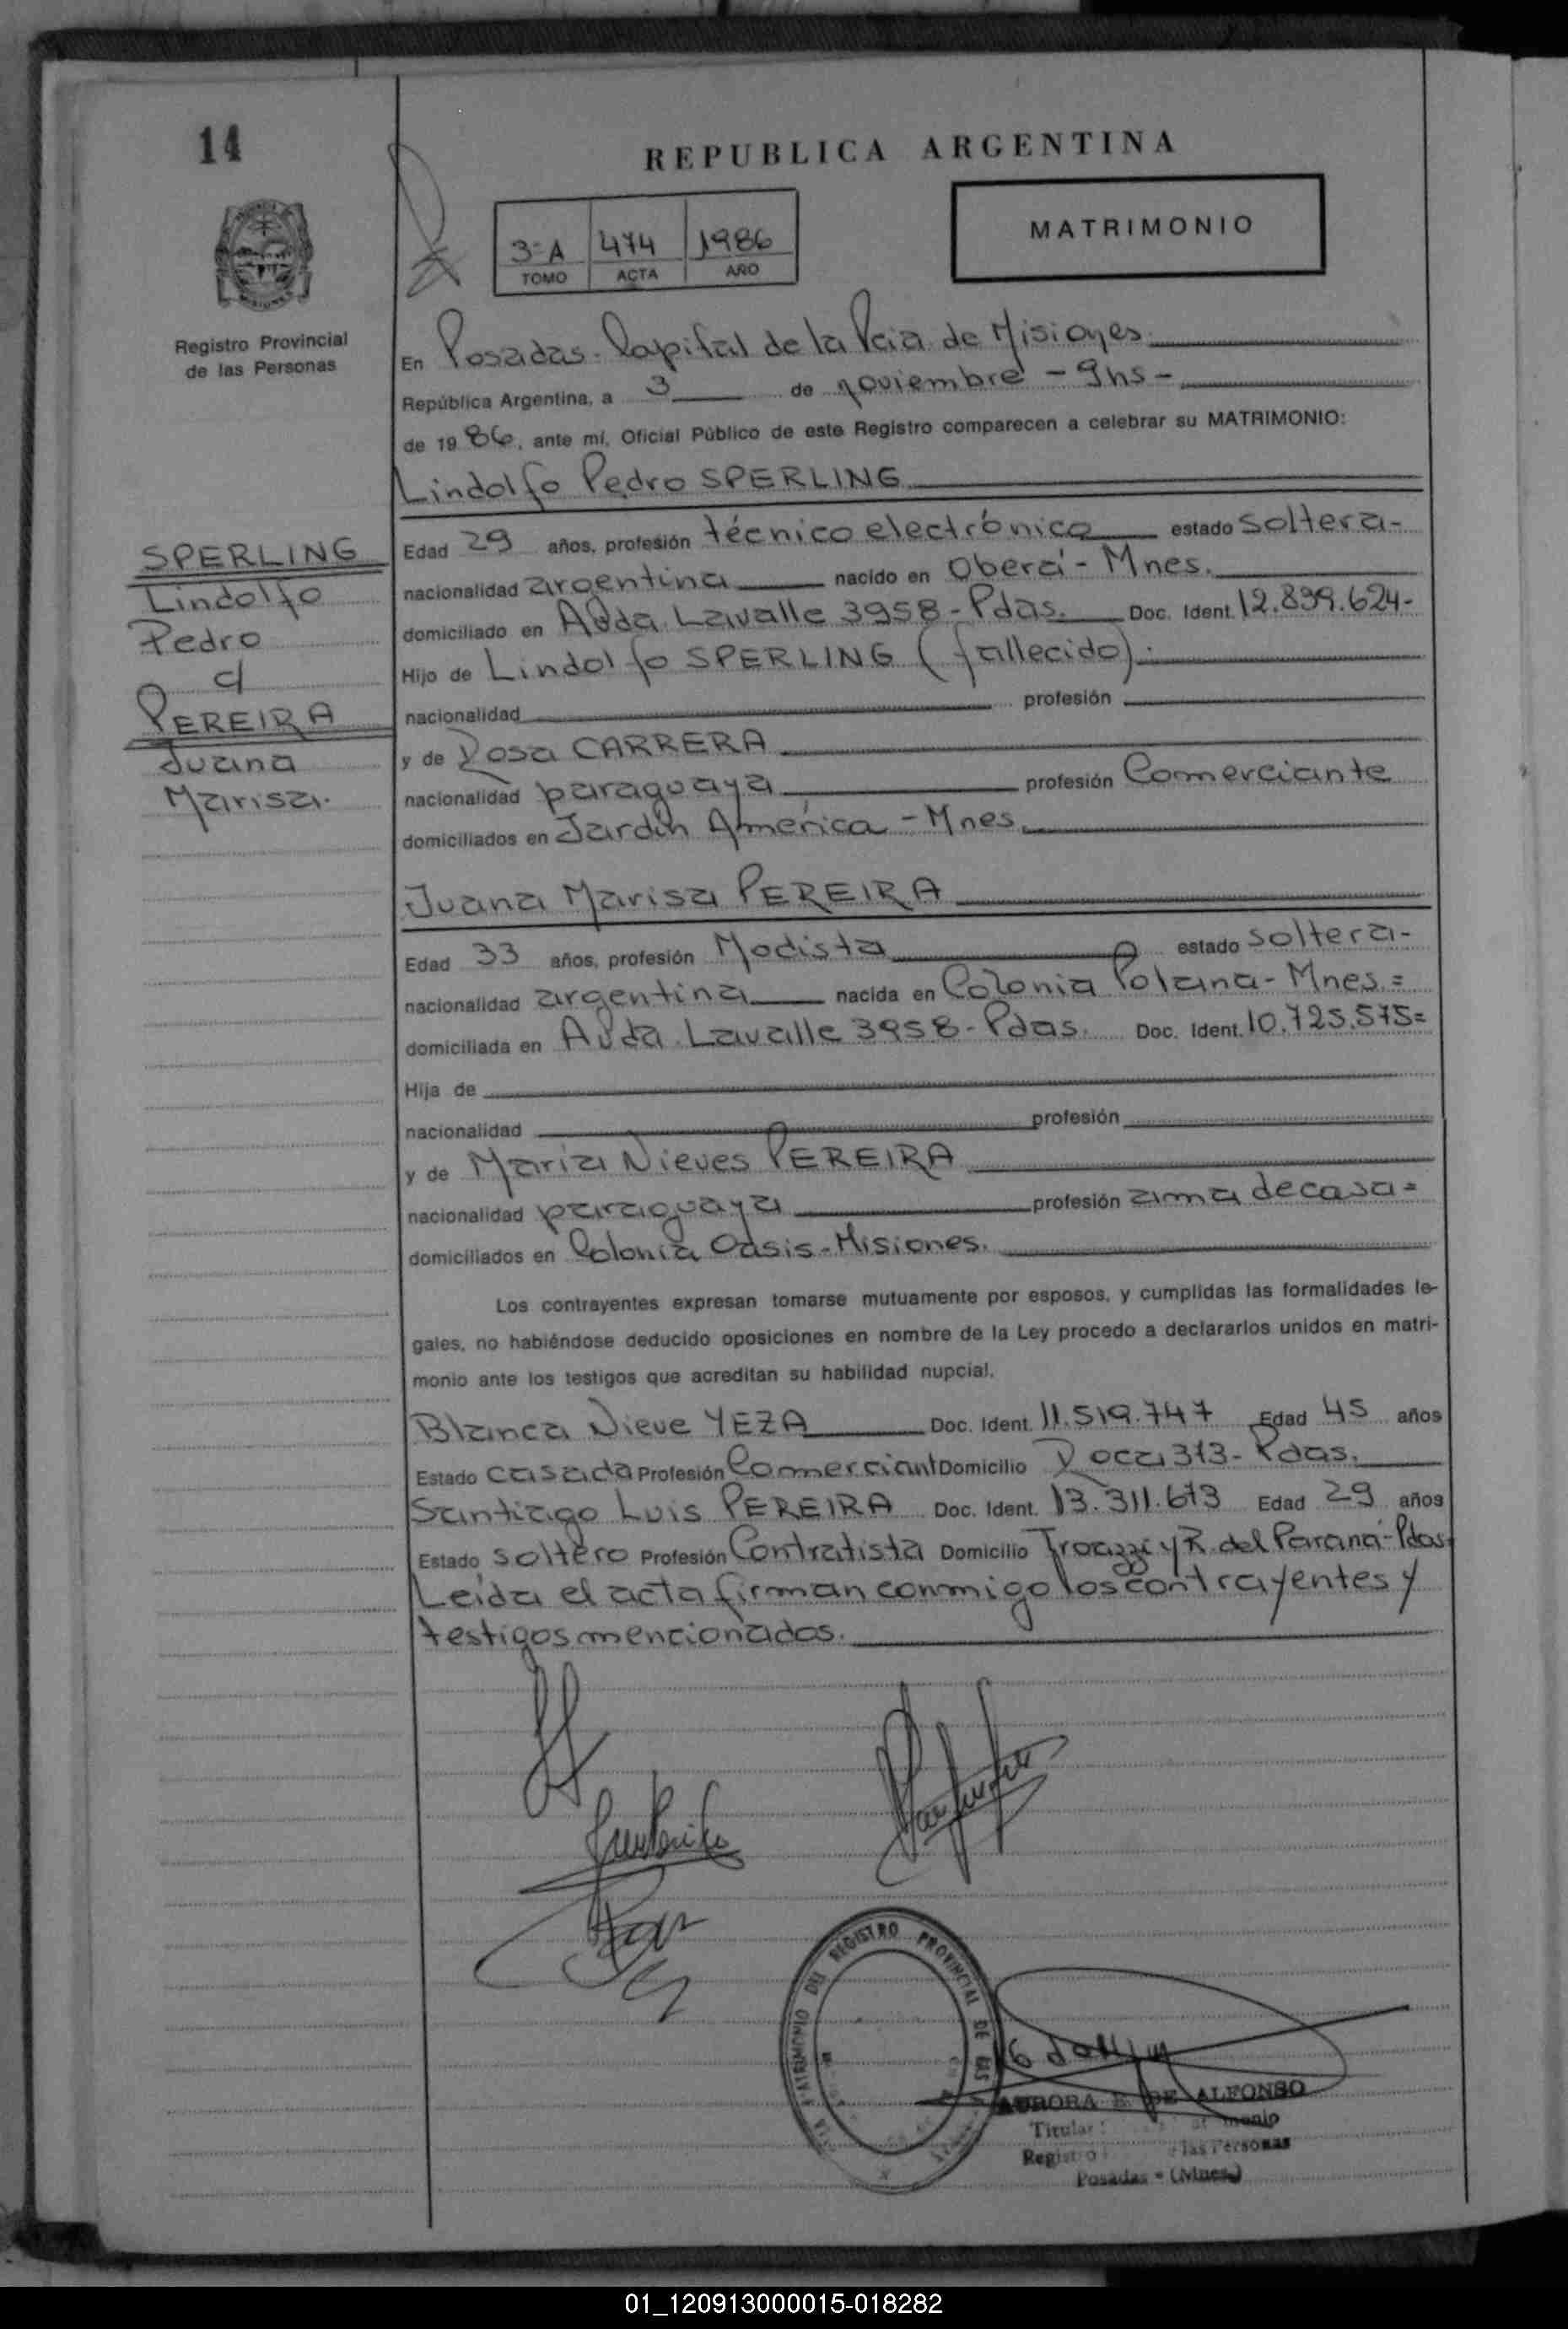 14
REPUBLICA ARGENTINA
MATRIMONIO
3-A 474 1986
TOMO ACTA AÑO
Registro Provincial
de las Personas
En Posadas. Capital de la Pcia de Misiones
República Argentina, a 3 de noviembre - 9hs -
de 1986, ante mí, Oficial Público de este Registro comparecen a celebrar su MATRIMONIO:
Lindolfo Pedro SPERLING
SPERLING
Lindolfo
Pedro
c/
PEREIRA
Juana
Marisa.
Edad 29 años, profesión técnico electrónico estado soltera-
nacionalidad argentina nacido en Oberá - Mnes.
domiciliado en Avda. Lavalle 3958 - Pdas. Doc. Ident. 12.839.624-
Hijo de Lindolfo SPERLING (fallecido).
nacionalidad profesión
y de Rosa CARRERA
nacionalidad paraguaya profesión Comerciante
domiciliados en Jardín América - Mnes.
Juana Marisa PEREIRA
Edad 33 años, profesión Modista estado soltera-
nacionalidad argentina nacida en Colonia Polana - Mnes.=
domiciliada en Avda. Lavalle 3958 - Pdas. Doc. Ident. 10.725.575=
Hija de
nacionalidad profesión
y de María Nieves PEREIRA
nacionalidad paraguaya profesión ama de casa=
domiciliados en Colonia Oasis - Misiones.
Los contrayentes expresan tomarse mutuamente por esposos, y cumplidas las formalidades le-
gales, no habiéndose deducido oposiciones en nombre de la Ley procedo a declararlos unidos en matri-
monio ante los testigos que acreditan su habilidad nupcial.
Blanca Nieve YEZA Doc. Ident. 11.519.747 Edad 45 años
Estado casada Profesión Comerciant Domicilio Roca 373 - Pdas.
Santiago Luis PEREIRA Doc. Ident. 13.311.673 Edad 29 años
Estado soltero Profesión Contratista Domicilio Troazzi y R. del Paraná - Pdas-
Leída el acta firman conmigo los contrayentes y
testigos mencionados.
REGISTRO PROVINCIAL DE LAS
AURORA E. DE ALFONSO
Titular
Registro las Personas
Posadas - (Mnes.)
01_120913000015-018282